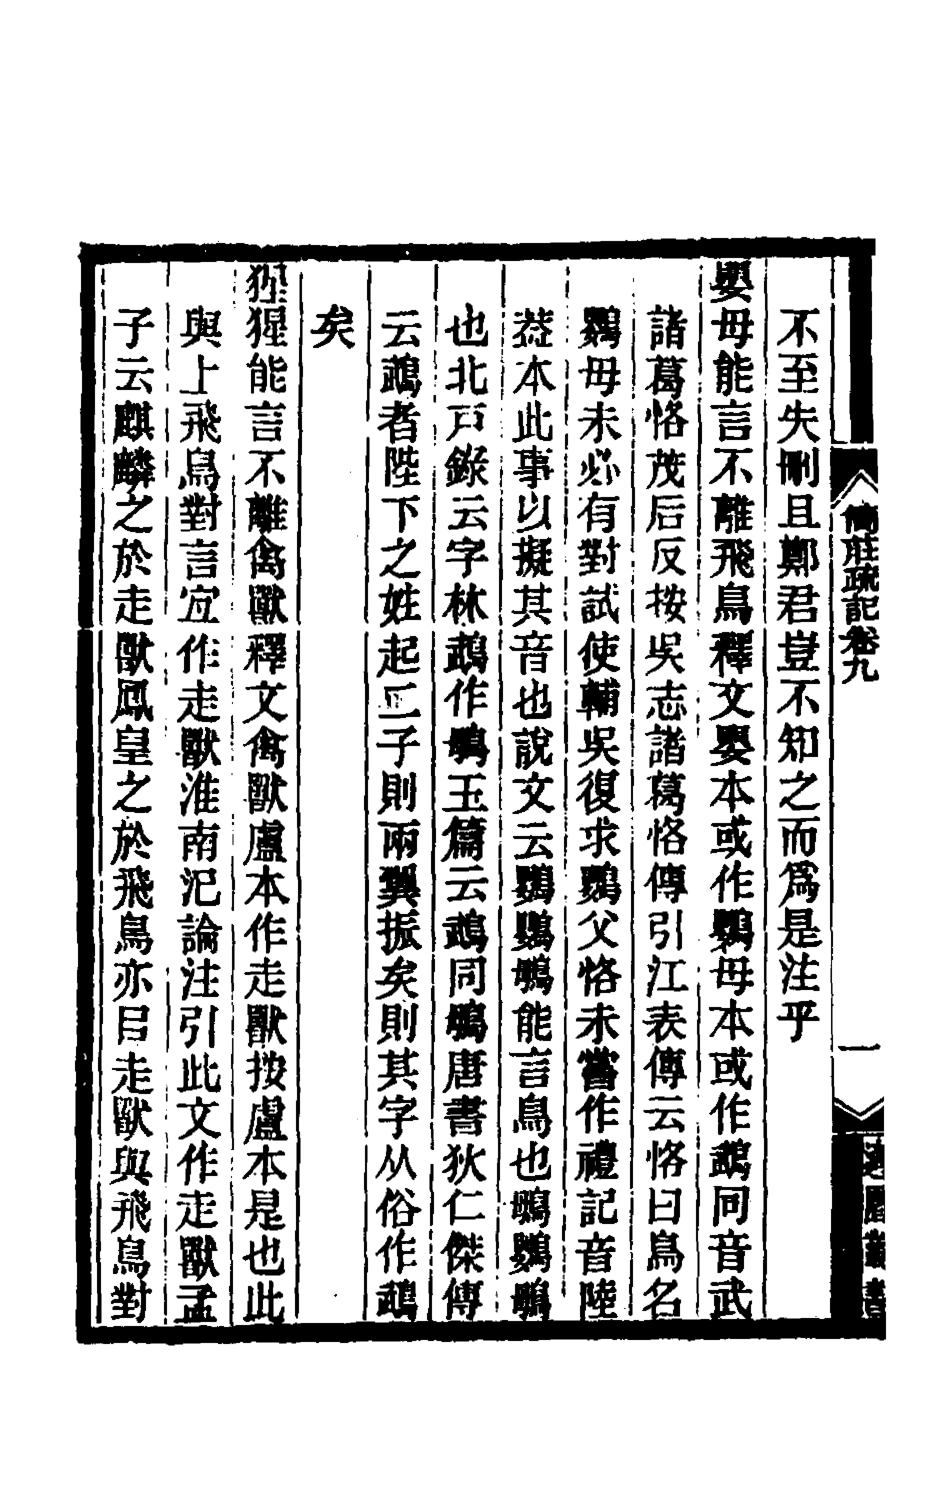 不至失刪且鄭君豈不知之而爲是注乎
嬰母能言不離飛鳥釋文嬰本或作鸚母本或作鵡同音武
諸葛恪茂后反按吳志諸葛恪傳引江表傳云恪曰鳥名
鸚母未必有對試使輔吳復求鸚父恪未嘗作禮記音陸
葢本此事以擬其音也說文云鸚鸚䳇能言鳥也䳇鸚䳇
也北戸錄云字林鵡作䳇玉篇云鵡同䳇唐書狄仁傑傳
云鵡者陛下之姓起二子則兩翼振矣則其字从俗作鵡
矣
猩猩能言不離禽獸釋文禽獸盧本作走獸按盧本是也此
與上飛鳥對言宜作走獸淮南氾論注引此文作走獸孟
子云麒麟之於走獸鳳皇之於飛鳥亦㠯走獸與飛鳥對
簡莊疏記卷九
一
叢書